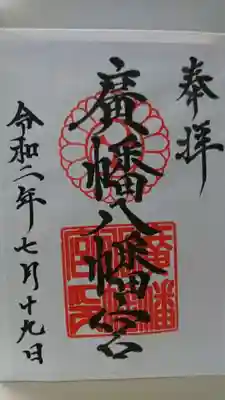 奉拝
廣幡八幡宮
令和二年七月十九日